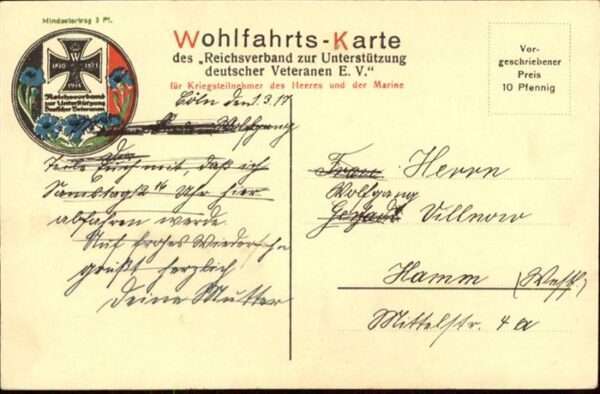 Mindestertrag 3 Pf.
Wohlfahrts-Karte
des „Reichsverband zur Unterstützung
deutscher Veteranen E. V."
für Kriegsteilnehmer des Heeres und der Marine
Vor-
geschriebener
Preis
10 Pfennig
W
1870 1871
1914
Reichsverband
zur Unterstützung
Deutscher Veteranen
Cöln den 1.3.17
Wolfgang
Teile Euch mit, daß ich
Samstag Uhr hier
abfahren werde.
Auf frohes Wiedersehn
grüßt herzlich
Deine Mutter
Frau Herrn
Wolfgang
Villnow
Hamm (Westf.)
Mittelstr. 4a